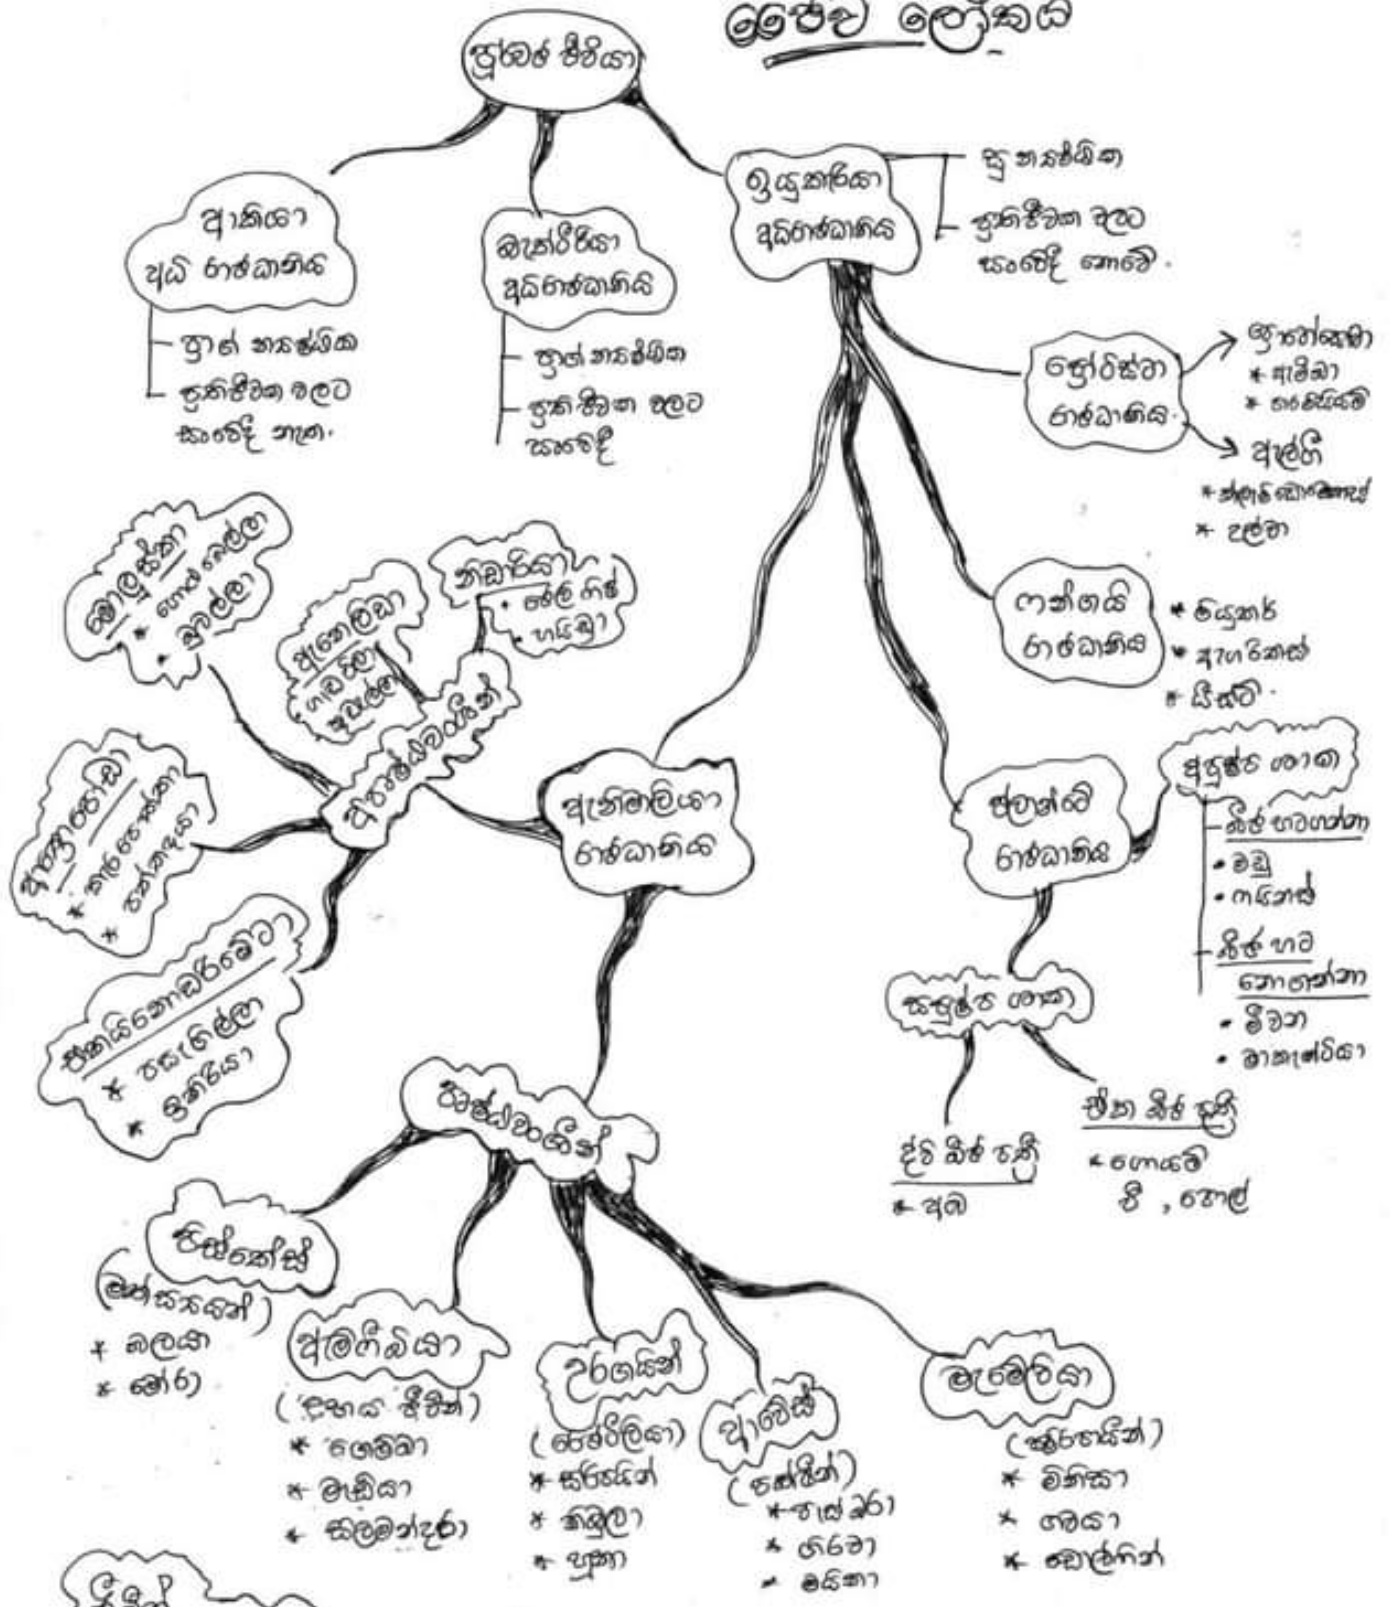 ජෛව ලෝකය
පූර්වජ ජීවියා
ආකියා
අධි රාජධානිය
- ප්‍රාග් න්‍යෂ්ඨික
- ප්‍රතිජීවක වලට
සංවේදී නැත.
බැක්ටීරියා
අධිරාජධානිය
- ප්‍රාග් න්‍යෂ්ඨික
- ප්‍රතිජීවක වලට
සංවේදී
ඉයුකැරියා
අධිරාජධානිය
සු න්‍යෂ්ඨික
ප්‍රතිජීවක වලට
සංවේදී නොවේ.
ප්‍රොටිස්ටා
රාජධානිය
* ඇමීබා
* පැරමීසියම්
ඇල්ගී
* උල්වා
ෆන්ගයි
රාජධානිය
* මියුකර්
* ඇගරිකස්
* යීස්ට්
ප්ලාන්ටේ
රාජධානිය
අපුෂ්ප ශාක
- බීජ හටගන්නා
• මඩු
• පයිනස්
- බීජ හට
නොගන්නා
• මීවන
• මාකැන්ටියා
සපුෂ්ප ශාක
ද්වි බීජ පත්‍රී
* අඹ
ඒක බීජ පත්‍රී
* ගොයම්
වී , පොල්
ඇනිමාලියා
රාජධානිය
අපෘෂ්ඨවංශීන්
නිඩාරියා
• ජෙලි ෆිෂ්
• හයිඩ්‍රා
ඇනෙලිඩා
ගැඩවිලා
කූඩැල්ලා
මොලුස්කා
* ගොළු බෙල්ලා
* බූවල්ලා
ආත්‍රොපෝඩා
* කැරපොත්තා
* පත්තෑයා
එකයිනොඩර්මේටා
* පසැඟිල්ලා
* ඉකිරියා
පෘෂ්ඨවංශීන්
පිස්කේස්
(මත්ස්‍යයන්)
* බලයා
* මෝරා
ඇම්ෆීබියා
(උභය ජීවීන්)
* ගෙම්බා
* මැඩියා
* සලමන්දරා
උරගයින්
(රෙප්ටීලියා)
* සර්පයින්
* කිඹුලා
* හූනා
ආවේස්
(පක්ෂීන්)
* පැස්බරා
* ගිරවා
* මයිනා
මැමේලියා
(ක්ෂීරපායීන්)
* මිනිසා
* ගවයා
* ඩොල්ෆින්